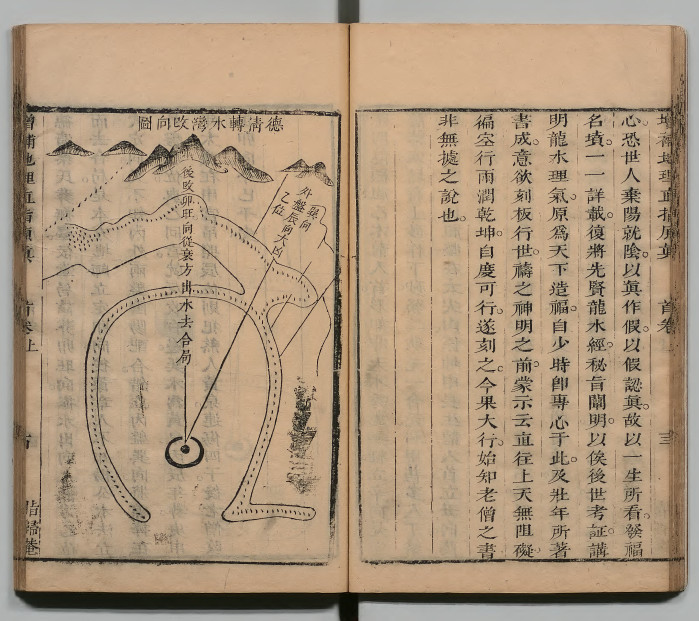 增補地理直指原眞 首卷上 三
心恐世人棄陽就陰。以眞作假。以假認眞。故以一生所看發福
名墳。一一詳載。復將先賢龍水經。秘旨闡明。以俟後世考証。講
明龍水理氣。原爲天下造福。自少時卽專心于此。及壯年所著
書成。意欲刻板行世。禱之神明之前。蒙示云。直徃上天無阻礙。
徧空行雨潤乾坤。自度可行。遂刻之。今果大行。始知老僧之書
非無據之說也。
德清轉水灣改向圖
巽向
外盤辰向大凶
乙位
後改卯旺向從衰方出水去合局
增補地理直指原眞 首卷上